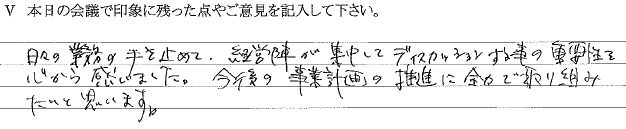 V 本日の会議で印象に残った点やご意見を記入して下さい。
日々の業務の手を止めて、経営陣が集中してディスカッションする事の重要性を
心から感じました。今後の事業計画の推進に全力で取り組み
たいと思います。